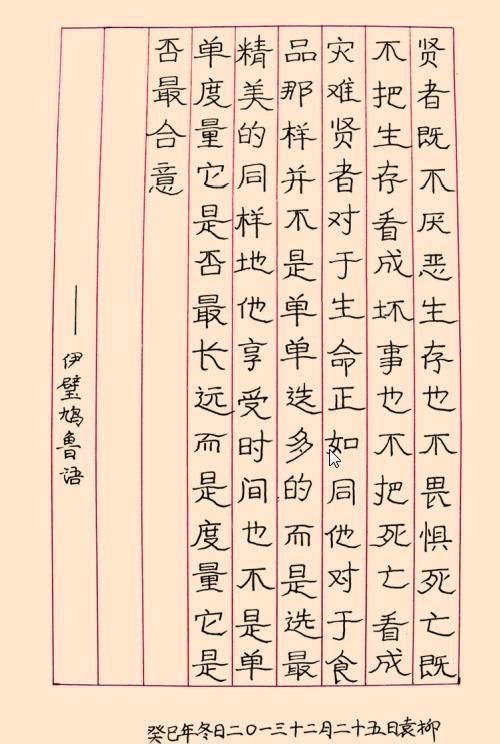 贤者既不厌恶生存也不畏惧死亡既
不把生存看成坏事也不把死亡看成
灾难贤者对于生命正如同他对于食
品那样并不是单单选多的而是选最
精美的同样地他享受时间也不是单
单度量它是否最长远而是度量它是
否最合意
——伊壁鸠鲁语
癸巳年冬日二〇一三十二月二十五日袁柳